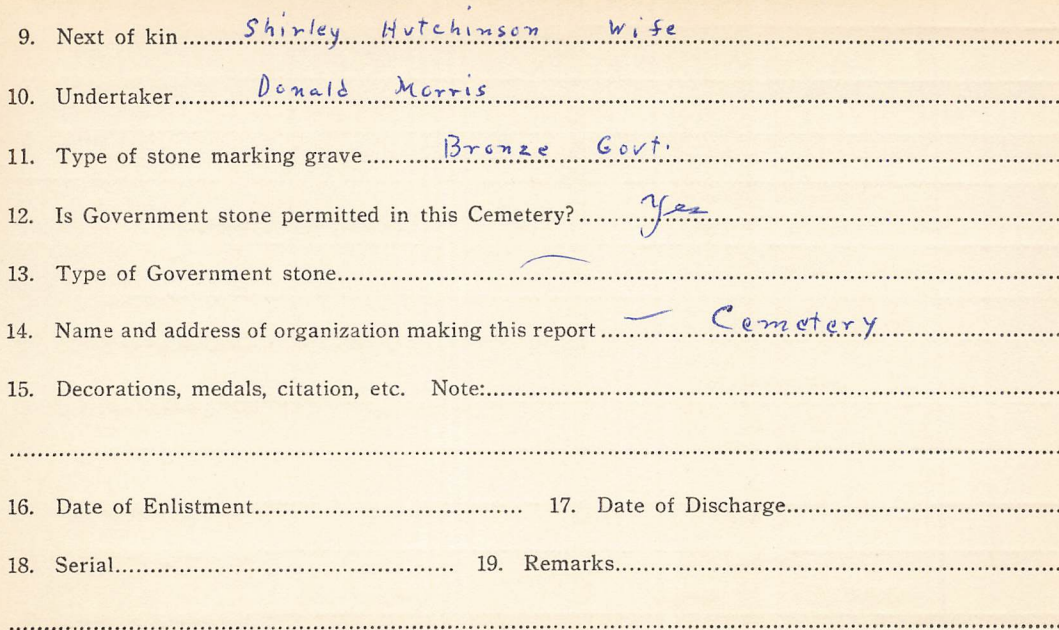 9. Next of kin Shirley Hutchinson Wife
10. Undertaker Donald Morris
11. Type of stone marking grave Bronze Govt.
12. Is Government stone permitted in this Cemetery? Yes
13. Type of Government stone —
14. Name and address of organization making this report — Cemetery
15. Decorations, medals, citation, etc. Note:
16. Date of Enlistment 17. Date of Discharge
18. Serial 19. Remarks